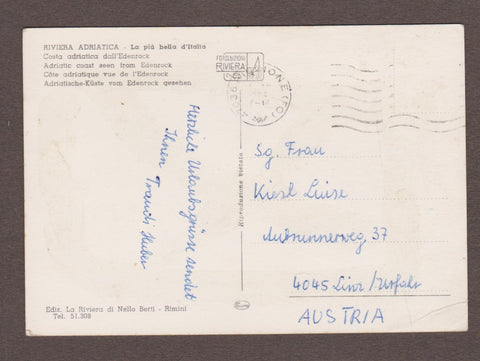 RIVIERA ADRIATICA - La più bella d'Italia
Costa adriatica dall'Edenrock
Adriatic coast seen from Edenrock
Côte adriatique vue de l'Edenrock
Adriatische-Küste vom Edenrock gesehen
RIVIERA
Herzliche Urlaubsgrüsse sendet
Ihnen Traudi Huber
Riproduzione vietata
Sg. Frau
Kiesl Luise
Aubrunnerweg 37
4045 Linz/Urfahr
AUSTRIA
Ediz. La Riviera di Nello Berti - Rimini
Tel. 51.308